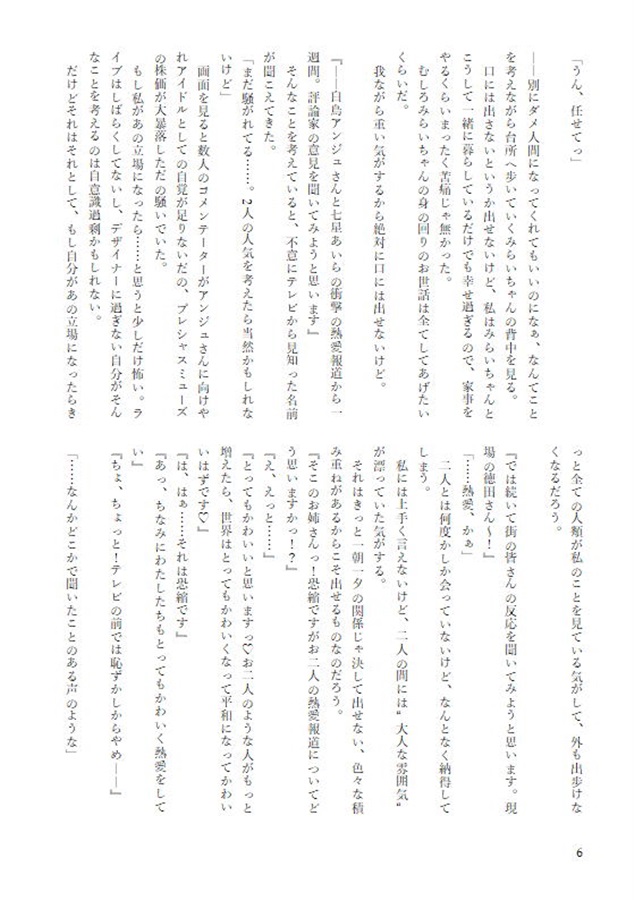 「うん、任せてっ」
――別にダメ人間になってくれてもいいのになぁ、なんてこと
を考えながら台所へ歩いていくみらいちゃんの背中を見る。
口には出さないというか出せないけど、私はみらいちゃんと
こうして一緒に暮らしているだけでも幸せ過ぎるので、家事を
やるくらいまったく苦痛じゃ無かった。
むしろみらいちゃんの身の回りのお世話は全てしてあげたい
くらいだ。
我ながら重い気がするから絶対に口には出せないけど。
『――白鳥アンジュさんと七星あいらの衝撃の熱愛報道から一
週間。評論家の意見を聞いてみようと思います』
そんなことを考えていると、不意にテレビから見知った名前
が聞こえてきた。
「まだ騒がれてる……。2人の人気を考えたら当然かもしれな
いけど」
画面を見ると数人のコメンテーターがアンジュさんに向けや
れアイドルとしての自覚が足りないだの、プレシャスミューズ
の株価が大暴落しただの騒いでいた。
もし私があの立場になったら……と思うと少しだけ怖い。ラ
イブはしばらくしてないし、デザイナーに過ぎない自分がそん
なことを考えるのは自意識過剰かもしれない。
だけどそれはそれとして、もし自分があの立場になったらき
っと全ての人類が私のことを見ている気がして、外も出歩けな
くなるだろう。
『では続いて街の皆さんの反応を聞いてみようと思います。現
場の徳田さん〜！』
「……熱愛、かぁ」
二人とは何度かしか会っていないけど、なんとなく納得して
しまう。
私には上手く言えないけど、二人の間には“大人な雰囲気”
が漂っていた気がする。
それはきっと一朝一夕の関係じゃ決して出せない、色々な積
み重ねがあるからこそ出せるものなのだろう。
『そこのお姉さんっ！恐縮ですがお二人の熱愛報道についてど
う思いますかっ！？』
『え、えっと……』
『とってもかわいいと思いますっ♡お二人のような人がもっと
増えたら、世界はとってもかわいくなって平和になってかわい
いはずです♡』
『は、はぁ……それは恐縮です』
『あっ、ちなみにわたしたちもとってもかわいく熱愛をして
い』
『ちょ、ちょっと！テレビの前では恥ずかしからやめ――』
「……なんかどこかで聞いたことのある声のような」
6